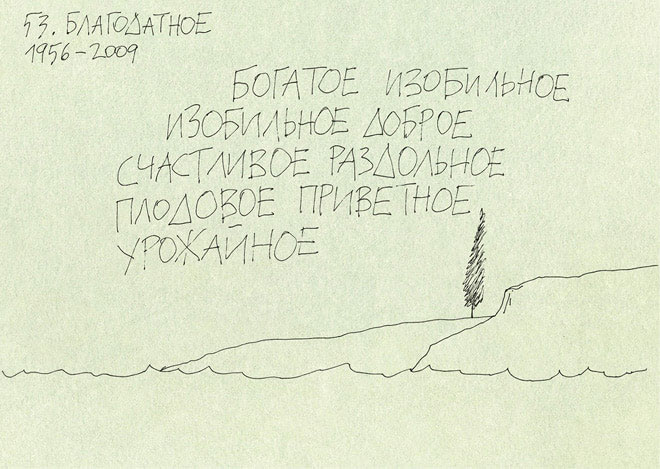 53. БЛАГОДАТНОЕ
1956-2009
БОГАТОЕ ИЗОБИЛЬНОЕ
ИЗОБИЛЬНОЕ ДОБРОЕ
СЧАСТЛИВОЕ РАЗДОЛЬНОЕ
ПЛОДОВОЕ ПРИВЕТНОЕ
УРОЖАЙНОЕ